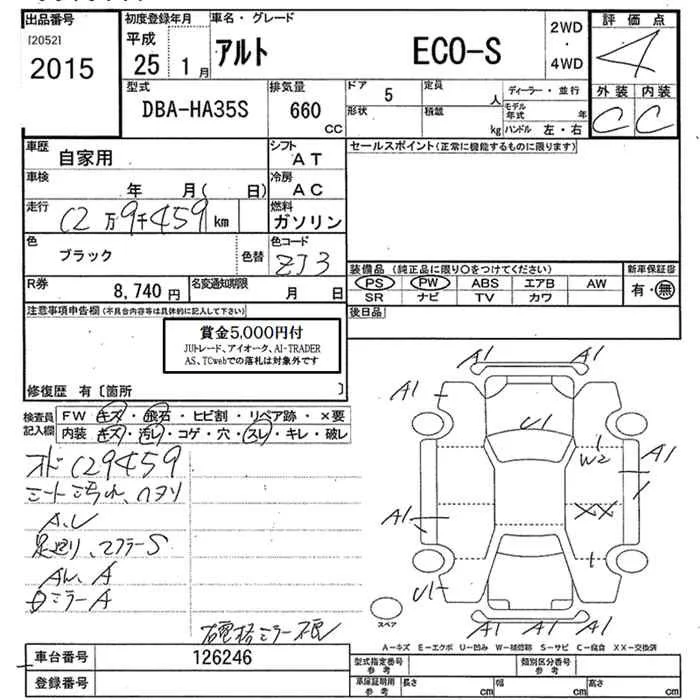 出品番号
[2052]
2015
初度登録年月
平成
25 1 月
車名・グレード
アルト ECO-S
2WD
・
4WD
評価点
4
外装 内装
C C
型式
DBA-HA35S
排気量
660
CC
ドア 5
形状
定員 人
積載 kg
ディーラー・並行
モデル年式 年
ハンドル 左・右
車歴
自家用
シフト
AT
セールスポイント(正常に機能するものに限ります)
車検
年 月( 日)
冷房
AC
走行
12万9千459km
燃料
ガソリン
色
ブラック
色替
色コード
ZJ3
装備品 (純正品に限り○をつけてください)
新車保証書
PS PW ABS エアB AW
有・無
SR ナビ TV カワ
R券
8,740 円
名変通知期限
月 日
後日品
注意事項申告欄(不具合内容等は具体的に記入して下さい)
賞金5,000円付
JUトレード、アイオーク、AI-TRADER
AS、TCwebでの落札は対象外です
修復歴 有〔箇所 〕
検査員
記入欄
FW キズ・飛石・ヒビ割・リペア跡・×要
内装 キズ・汚レ・コゲ・穴・スレ・キレ・破レ
オド129459
シート汚れ、ハヌリ
A、U
足廻り、マフラーS
A
ミラーA
右電格ミラー不良
A1 A1
A1
U1
W2
A1
A1
XX
U1
A1 A1 A1
スペア
A=キズ E=エクボ U=凹み W=補修跡 S=サビ C=腐食 XX=交換済
車台番号
126246
登録番号
型式指定番号
参考
類別区分番号
参考
車庫証明用
参考
長さ cm 幅 cm 高さ cm